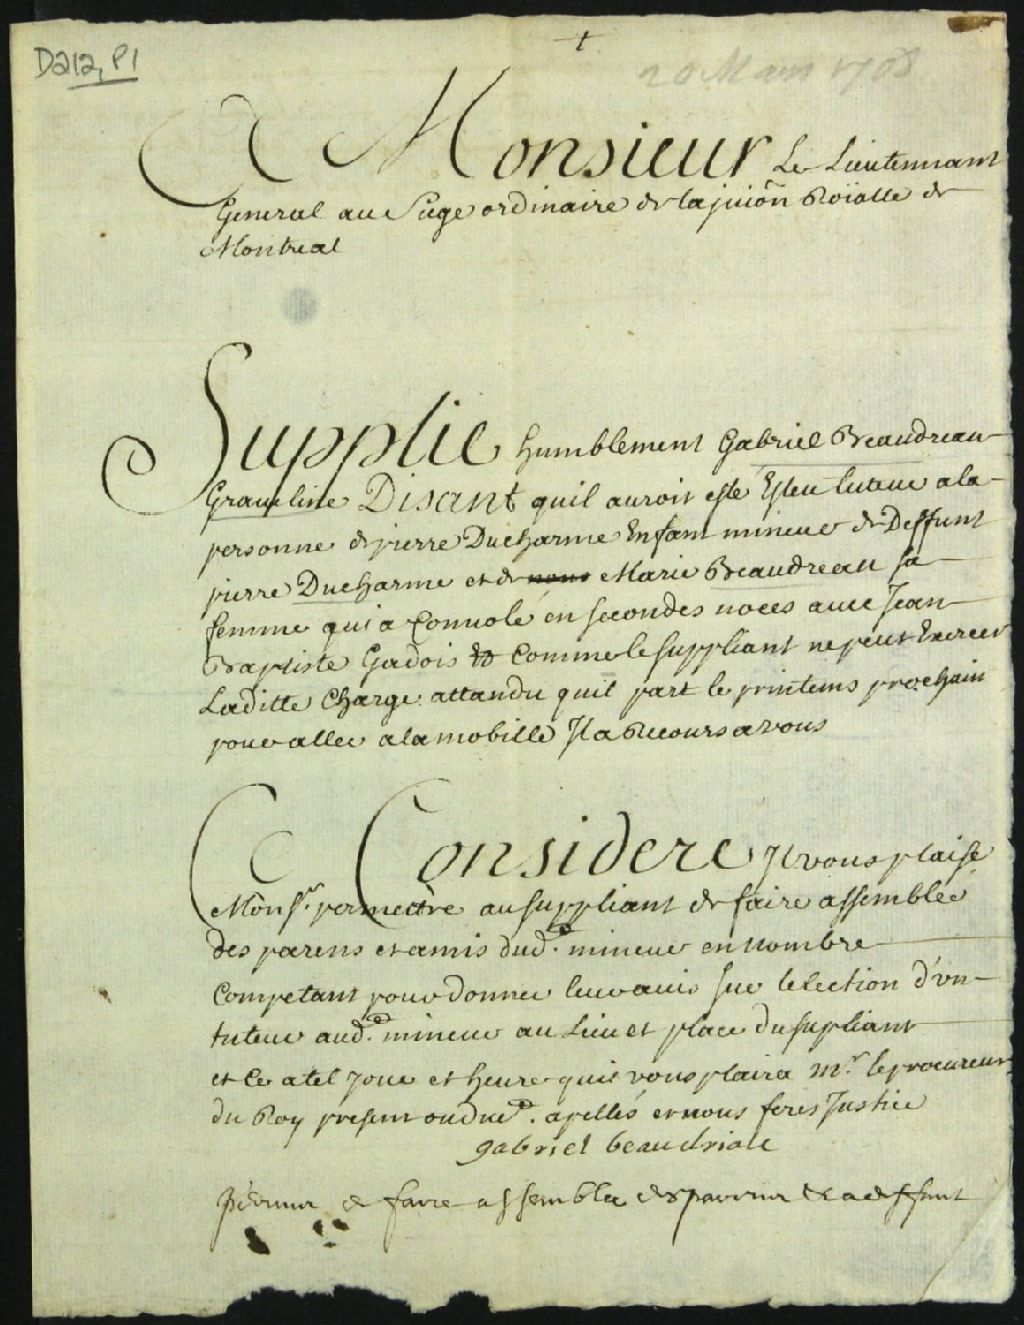 D212, P1
+
20 Mars 1708
A Monsieur Le Lieutennant
General au Siege ordinaire de la juiōn Roïalle de
Montreal
Supplie humblement Gabriel Beaudreau
Graveline Disant quil auroit esté Esleu tuteur a la
personne de pierre Ducharme Enfant mineur de Deffunt
pierre Ducharme et de nous Marie Beaudreau sa
femme qui a Convolé en secondes noces avec Jean
Baptiste Gadois Et Comme le suppliant ne peut Exercer
Laditte Charge attandu quil part le printems prochain
pour aller a la mobille Il a Recours a vous
Ce Considere Il vous plaise
Monsr. permettre au suppliant de faire assemblée
des parens et amis dud. mineur en nombre
Competant pour donner leur avis sur lelection d'un
tuteur aud. mineur au Lieu et place du supliant
et ce a tel jour et heure quil vous plaira Mr. le procureur
du Roy present ou due. apellés et vous feres Justice
gabriel beaudriau
de faire assembler des parens de deffunt